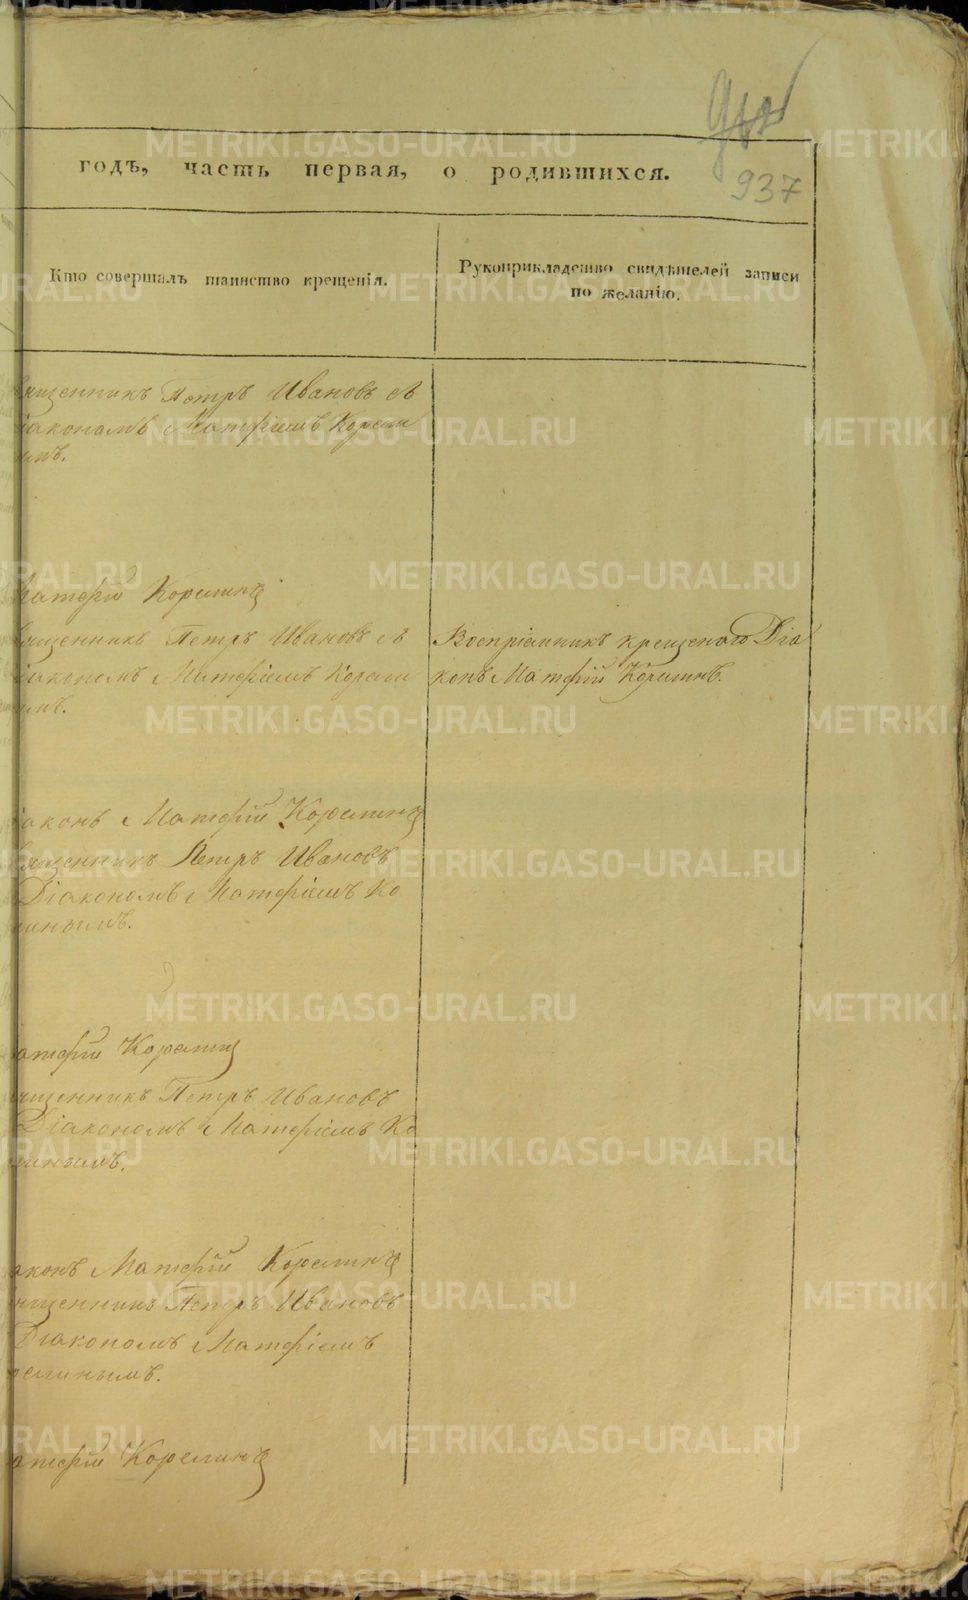 937
годъ, часть первая, о родившихся.
Кто совершалъ таинство крещенія.
Рукоприкладство свидѣтелей записи
по желанію.
вященникъ Петръ Ивановъ съ
іакономъ Матфіемъ Корели
ымъ.
Матфій Корелинъ
вященникъ Петръ Ивановъ съ
іакономъ Матфіемъ Корели
ымъ.
Воспріемникъ крещенаго Діа
конъ Матфій Корелинъ.
іаконъ Матфій Корелинъ
вященникъ Петръ Ивановъ
Діакономъ Матфіемъ Ко
линымъ.
атфій Корелинъ
ященникъ Петръ Ивановъ
Діакономъ Матфіемъ Ко
линымъ.
аконъ Матфій Корелинъ
ященникъ Петръ Ивановъ
Діакономъ Матфіемъ
релинымъ.
атфій Корелинъ
METRIKI.GASO-URAL.RU